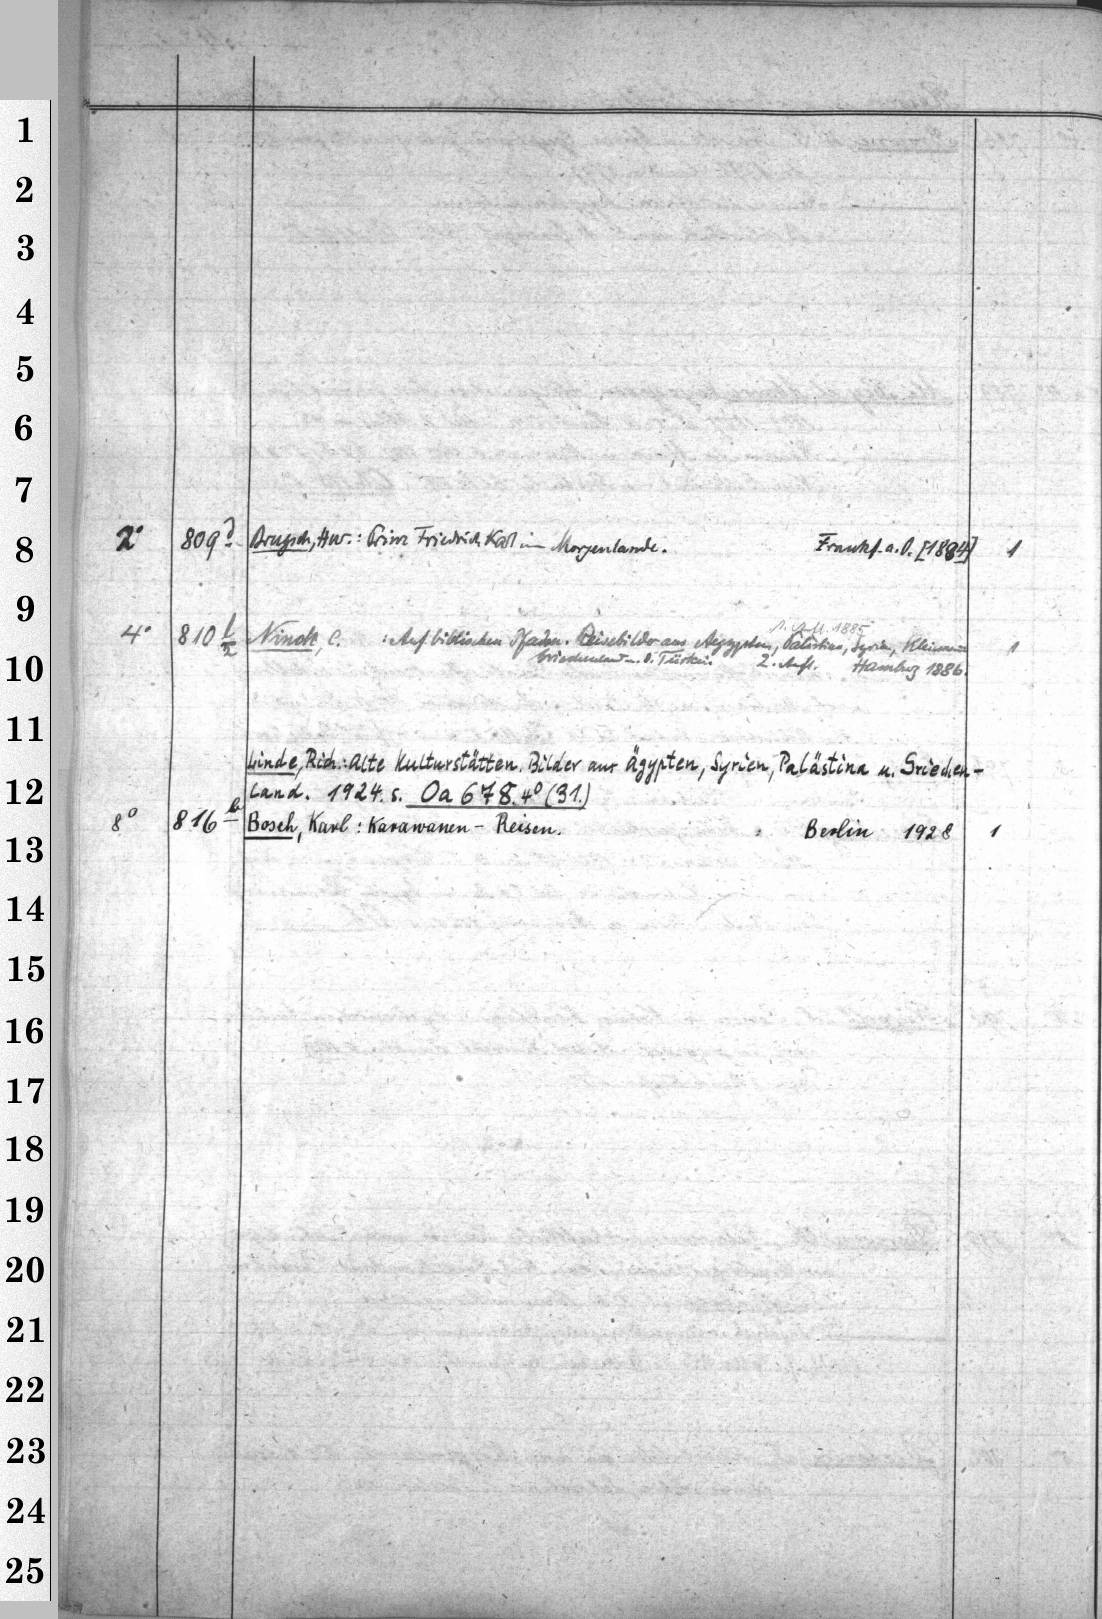 1
2
3
4
5
6
7
8
9
10
11
12
13
14
15
16
17
18
19
20
21
22
23
24
25
2° 809 Brugsch, Hnr.: Prinz Friedrich Karl im Morgenlande. Frankf. a. O. [1884] 1
1. Aufl. 1885
4° 810 Ninck, C. : Auf biblischen Pfaden. Reisebilder aus Aegypten, Palästina, Syrien, Kleinasien 1
Griechenland u. d. Türkei. 2. Aufl. Hamburg 1886.
Linde, Rich.: Alte Kulturstätten. Bilder aus Ägypten, Syrien, Palästina u. Griechen-
land. 1924. s. Oa 678. 4° (31.)
8° 816 b Bosch, Karl: Karawanen-Reisen. Berlin 1928 1